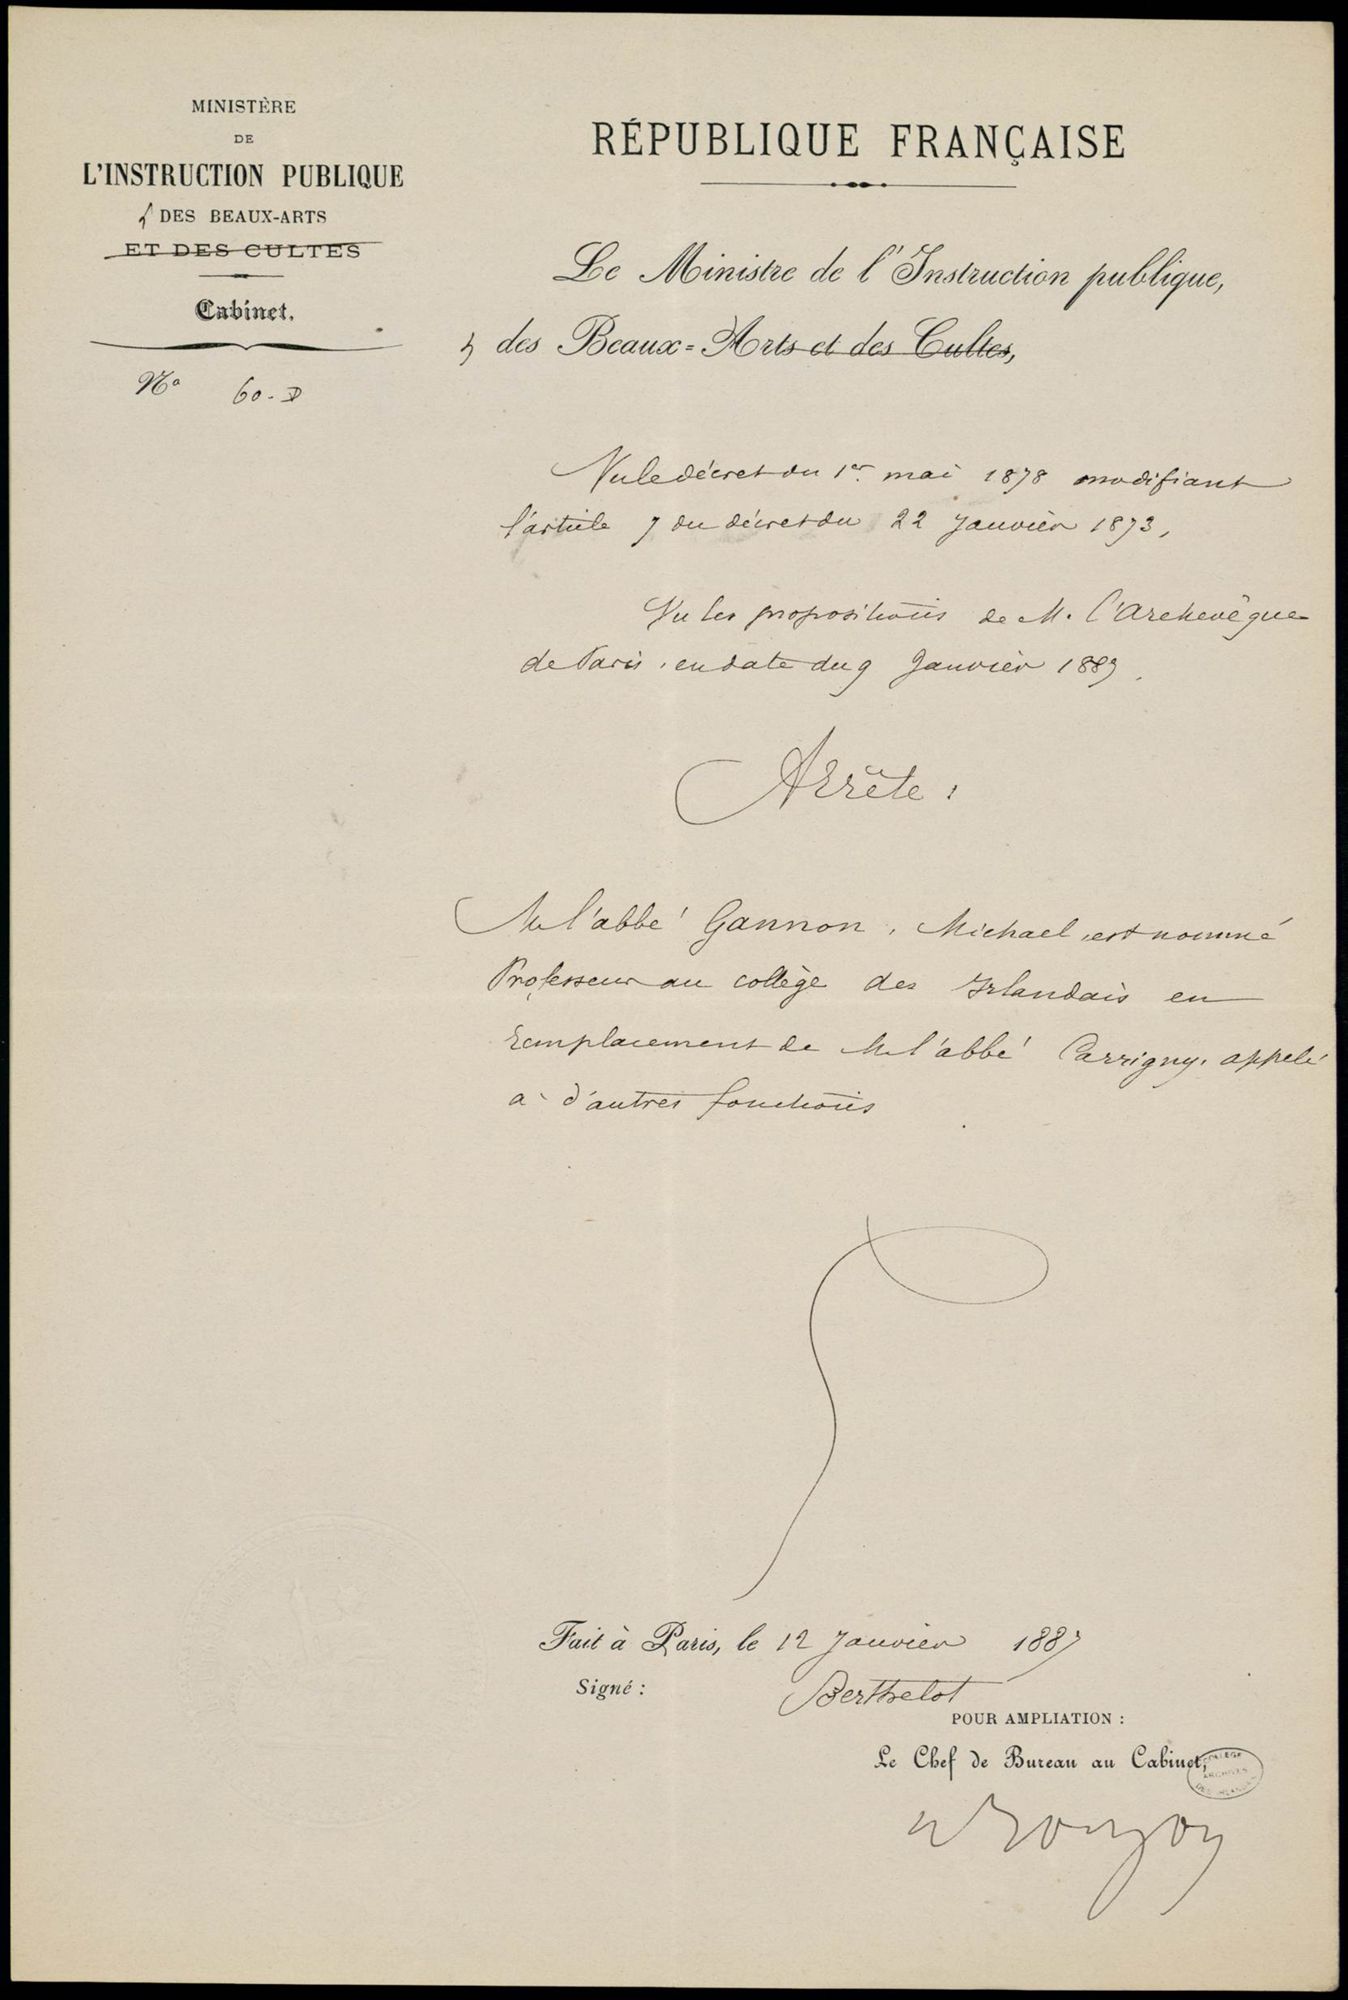 MINISTÈRE
DE
L'INSTRUCTION PUBLIQUE
& DES BEAUX-ARTS
ET DES CULTES
Cabinet.
N° 60-D
RÉPUBLIQUE FRANÇAISE
Le Ministre de l'Instruction publique,
& des Beaux-Arts et des Cultes,
Vu le décret du 1er mai 1878 modifiant
l'article 7 du décret du 22 Janvier 1873,
Vu les propositions de M. l'Archevêque
de Paris, en date du 9 Janvier 1887,
Arrête :
M l'abbé Gannon, Michael, est nommé
Professeur au collège des Irlandais en
remplacement de M l'abbé Carrigny, appelé
à d'autres fonctions
Fait à Paris, le 12 Janvier 1887
Signé : Berthelot
POUR AMPLIATION :
Le Chef de Bureau au Cabinet,
COLLÈGE
ARCHIVES
DES IRLANDAIS